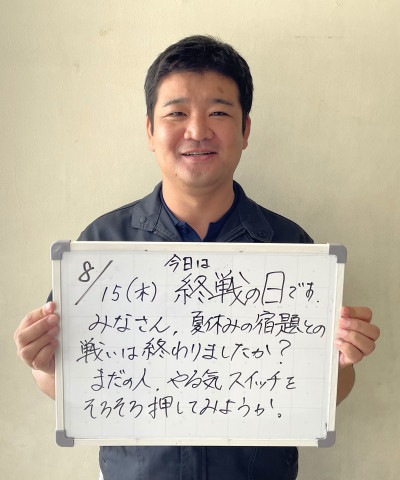 今日は
8/15(木) 終戦の日です.
みなさん,夏休みの宿題との
戦いは終わりましたか?
まだの人,やる気スイッチを
そろそろ押してみようか。